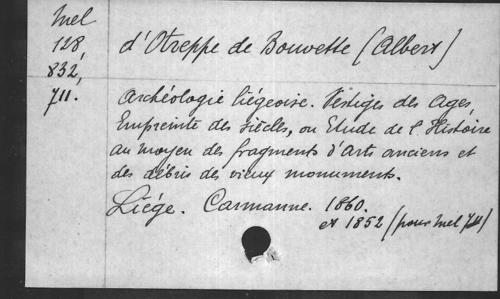 Mel
128,
832,
711.
d'Otreppe de Bouvette (Albert)
Archéologie liégeoise. Vestiges des Ages,
Empreinte des siècles, ou Etude de l'Histoire
au moyen des fragments d'Arts anciens et
des débris de vieux monuments.
Liége. Carmanne. 1860.
et 1852 (pour Mel 711)